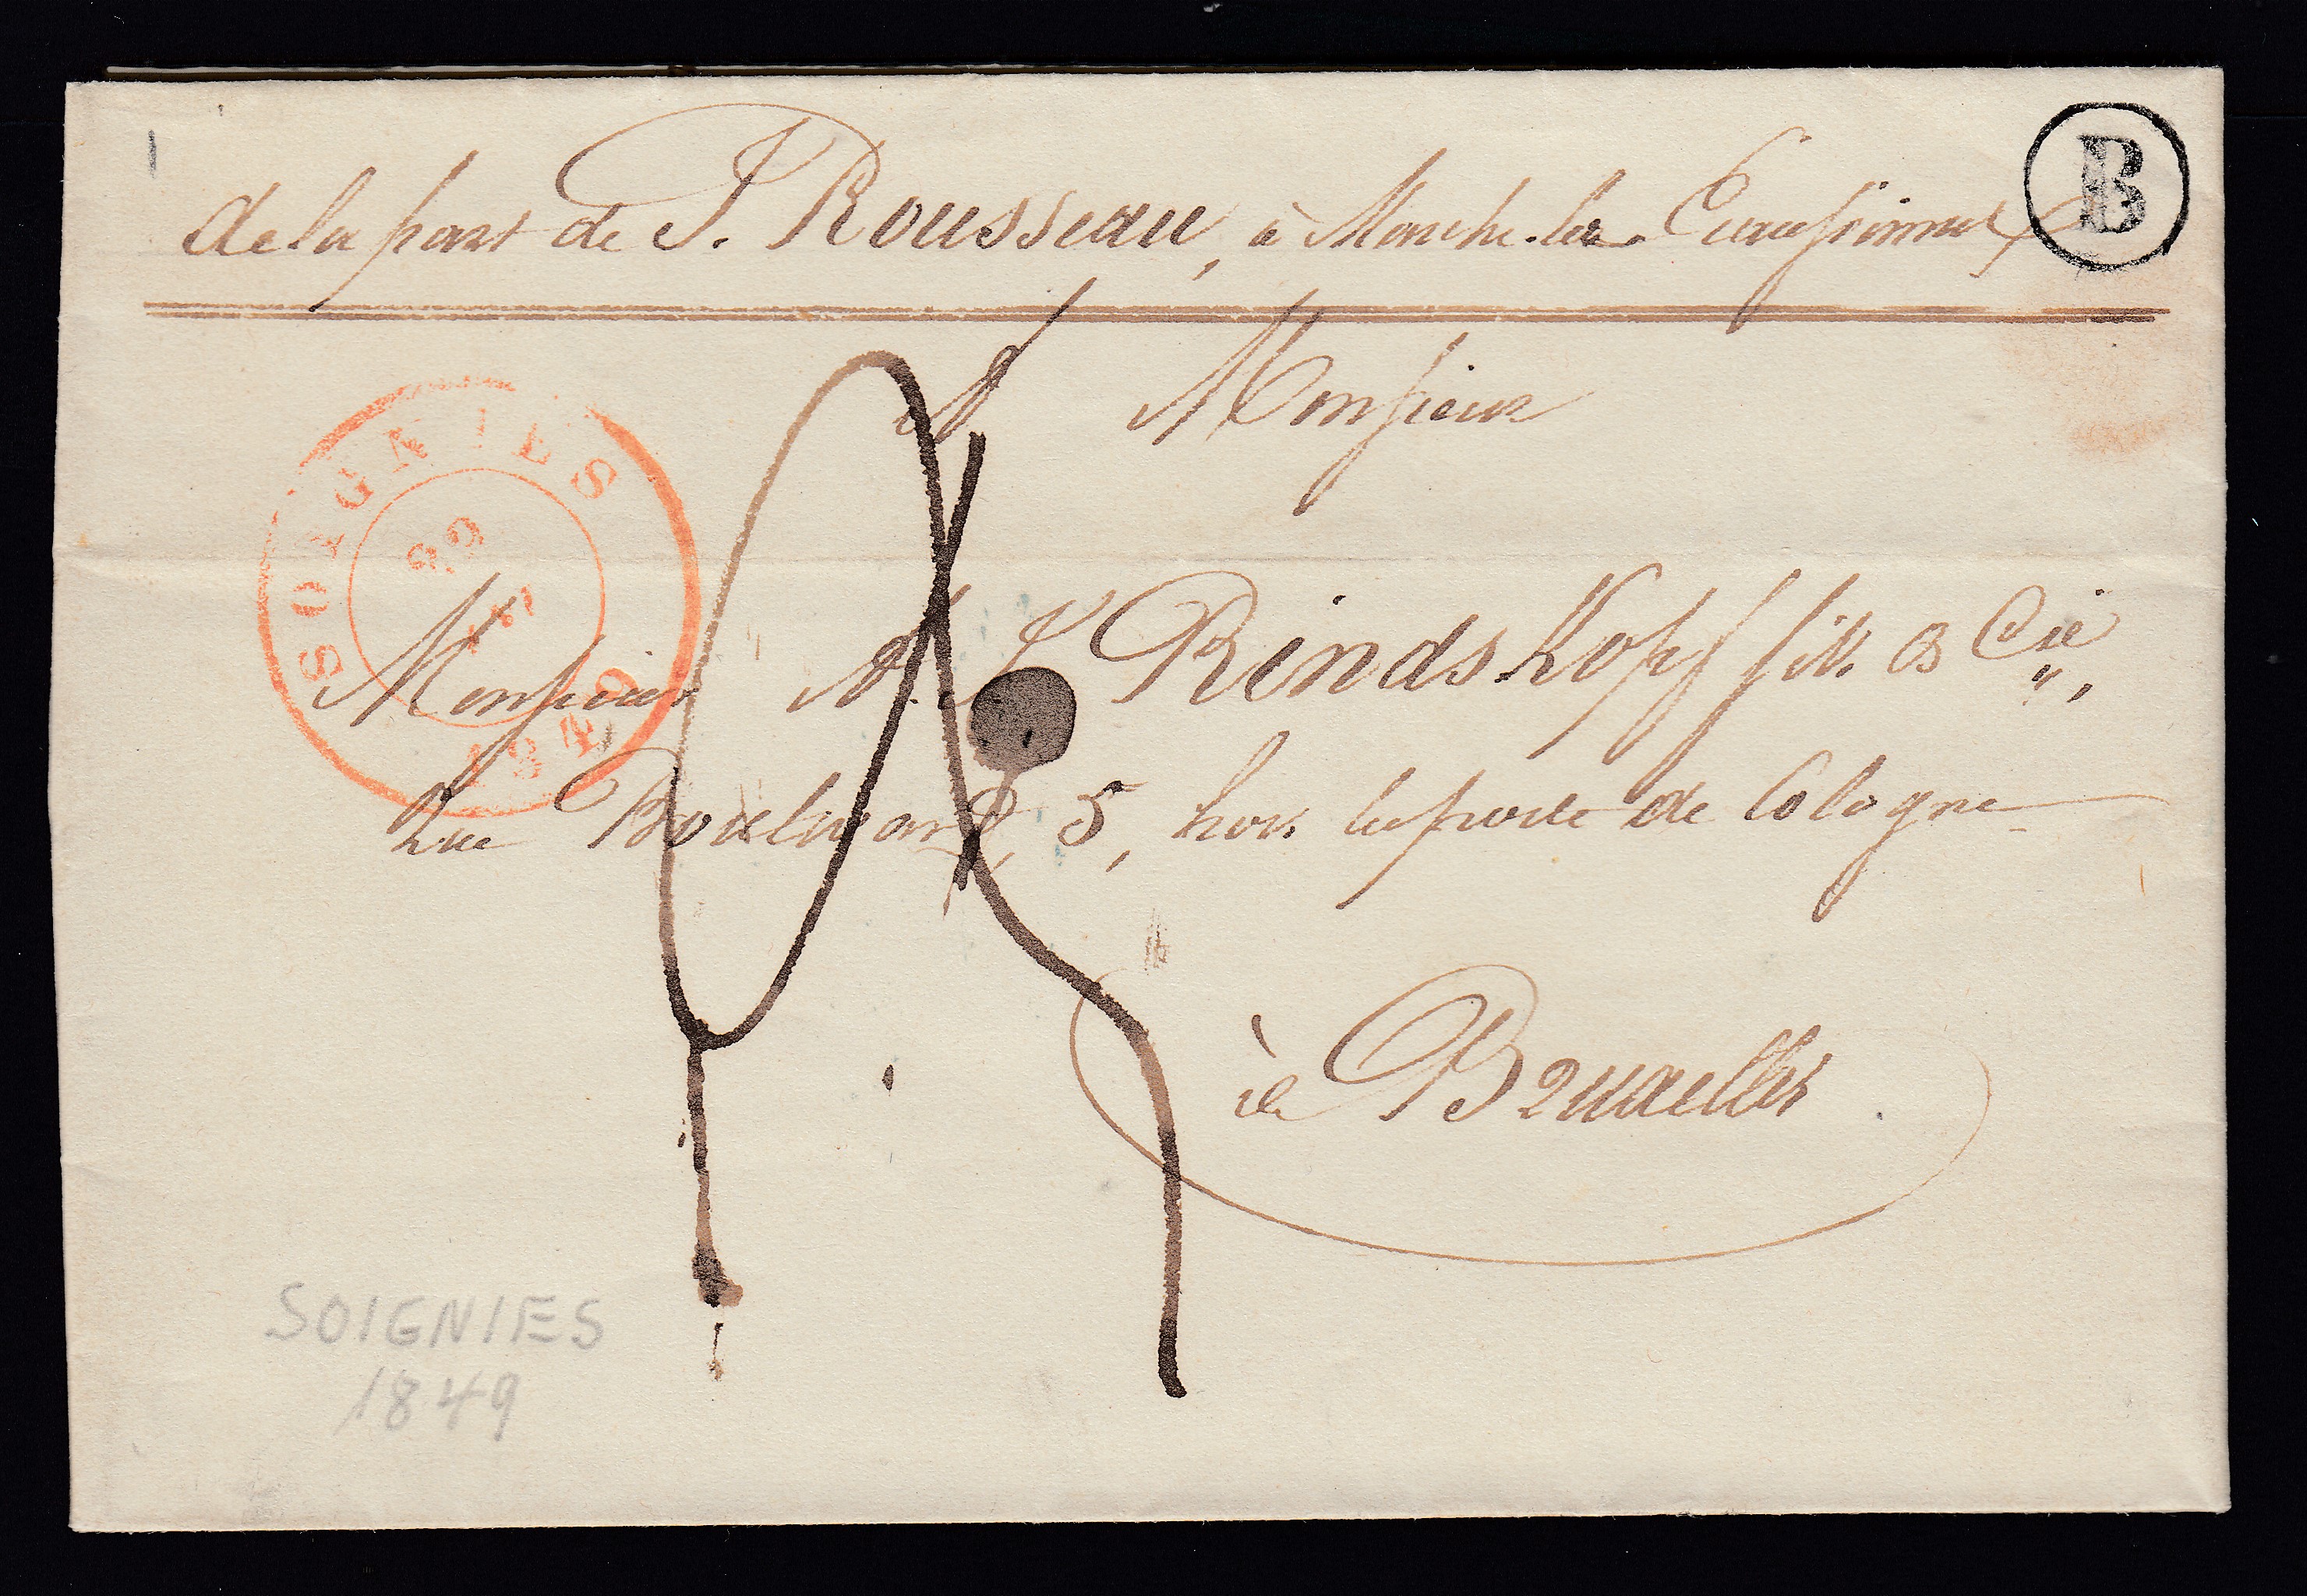 de la part de J. Rousseau, à Marche-lez-Ecaussinnes
B
A Monsieur
SOIGNIES
22
1849
Monsieur A. J. Rindskopf fils & Cie
Rue Boulevard, 5, hors la porte de Cologne
à Bruxelles
SOIGNIES
1849